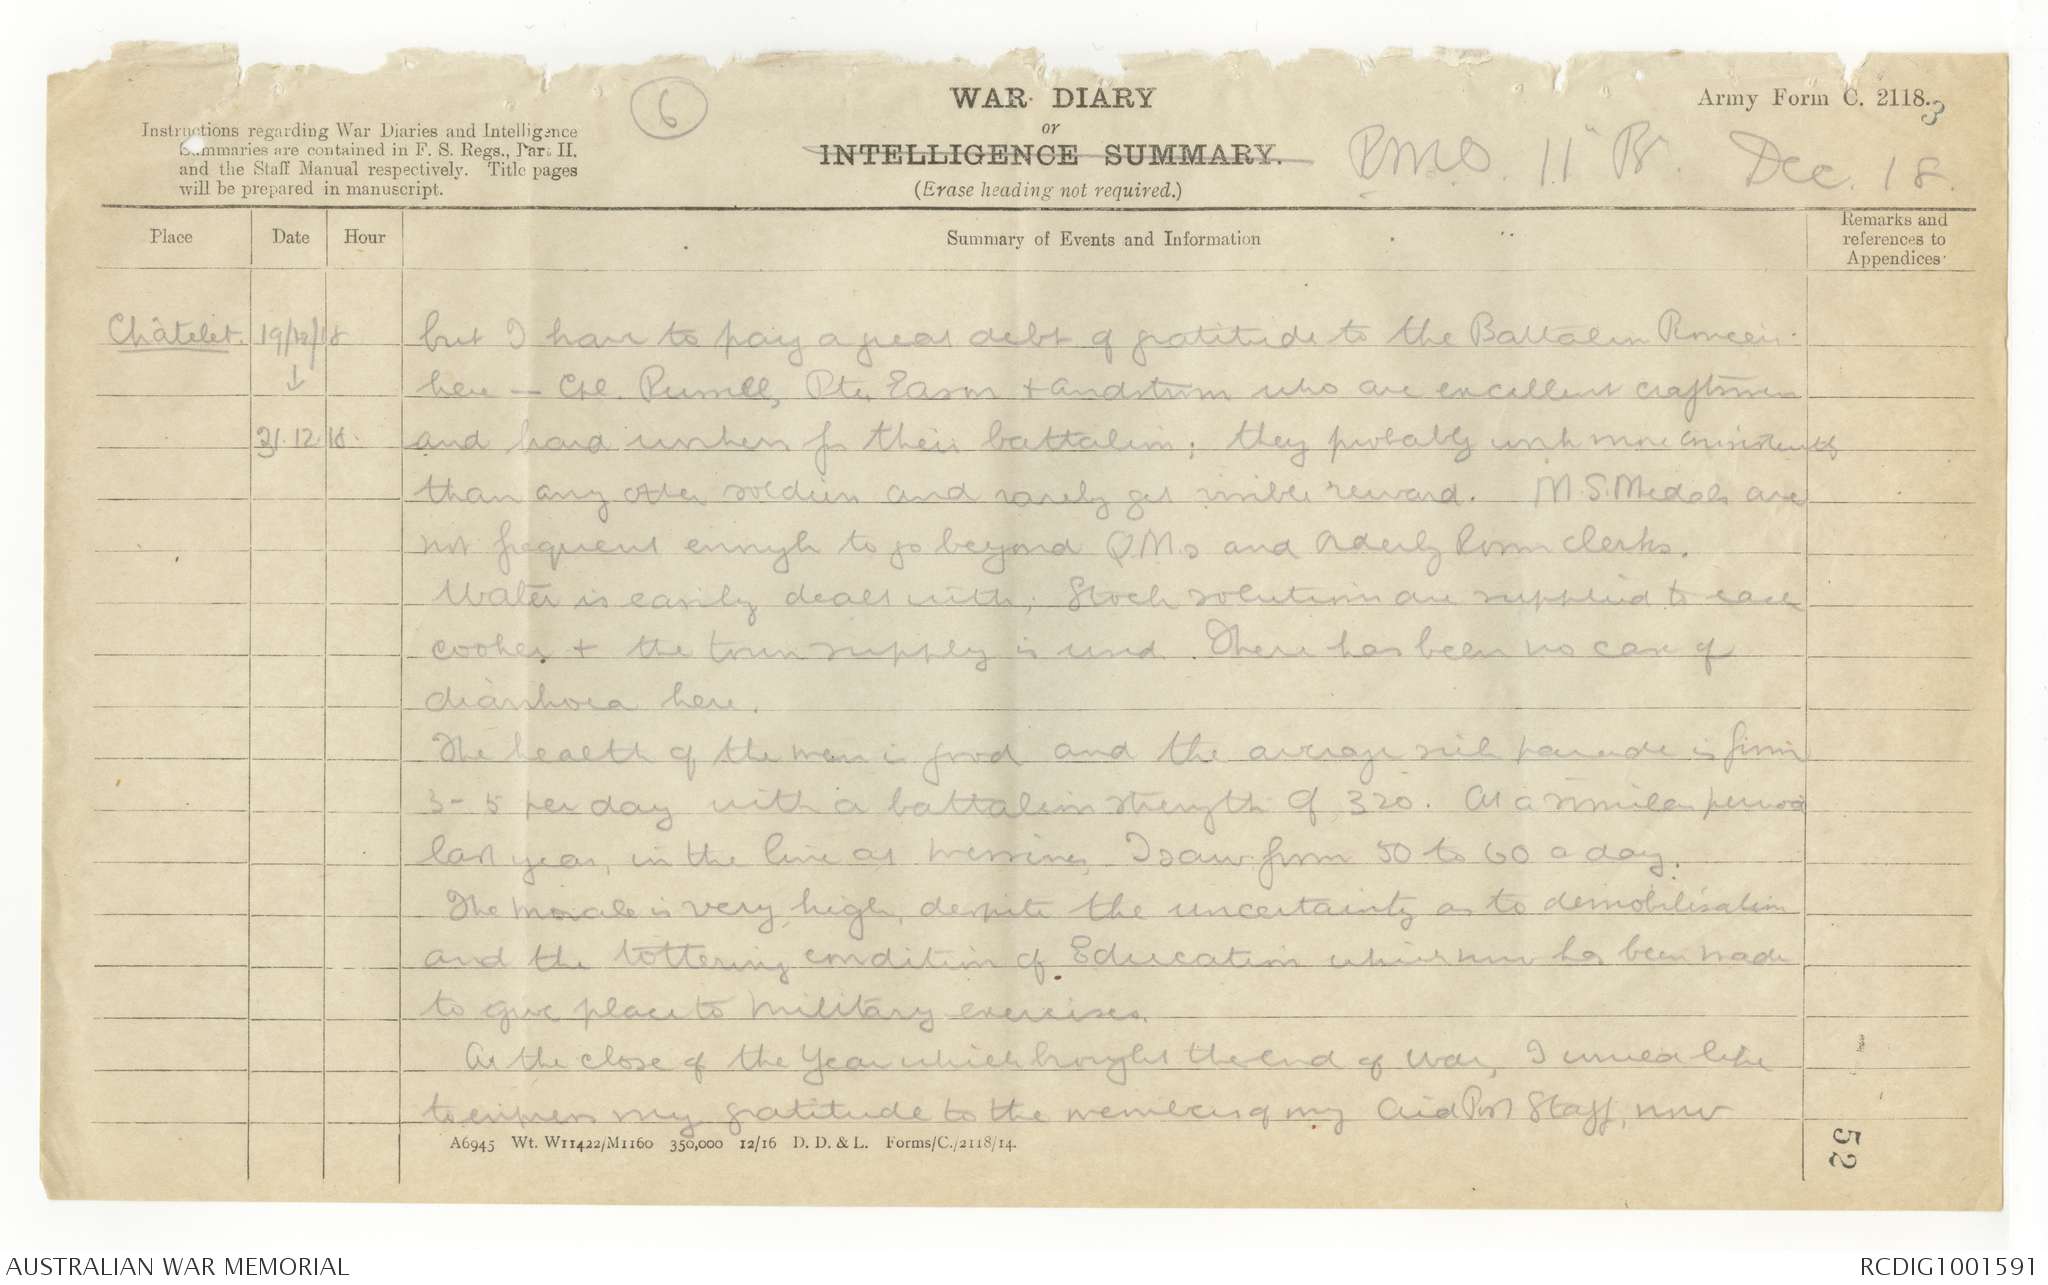 6
WAR DIARY
or
INTELLIGENCE SUMMARY.
(Erase heading not required.)
Army Form C. 2118.
3
Instructions regarding War Diaries and Intelligence
Summaries are contained in F. S. Regs., Part II.
and the Staff Manual respectively. Title pages
will be prepared in manuscript.
R.M.O. 11 Bn. Dec. 18.
Place
Date
Hour
Summary of Events and Information
Remarks and
references to
Appendices
Châtelet. 19/12/18 but I have to pay a great debt of gratitude to the Battalion Pioneers
here — Cpl. Pte. Eason + who are excellent craftsmen
31.12.18. and hard workers for their battalion; they probably work more consistently
than any other soldiers and rarely get visible reward. M.S. Medals are
not frequent enough to go beyond Q.M.s and Orderly Room Clerks.
Water is easily dealt with; Stock solutions are supplied to each
cooker + the town supply is used. There has been no case of
diarrhoea here.
The health of the men is good and the average sick parade is from
3-5 per day with a battalion strength of 320. At a similar period
last year, in the line at Messines, I saw from 50 to 60 a day.
The morale is very high, despite the uncertainty as to demobilisation
and the tottering condition of Education which now has been made
to give place to military exercises.
At the close of the Year which brought the end of war, I would like
to express my gratitude to the members of my Aid Post Staff, now
A6945 Wt. W11422/M1160 350,000 12/16 D. D. & L. Forms/C./2118/14.
52
AUSTRALIAN WAR MEMORIAL
RCDIG1001591